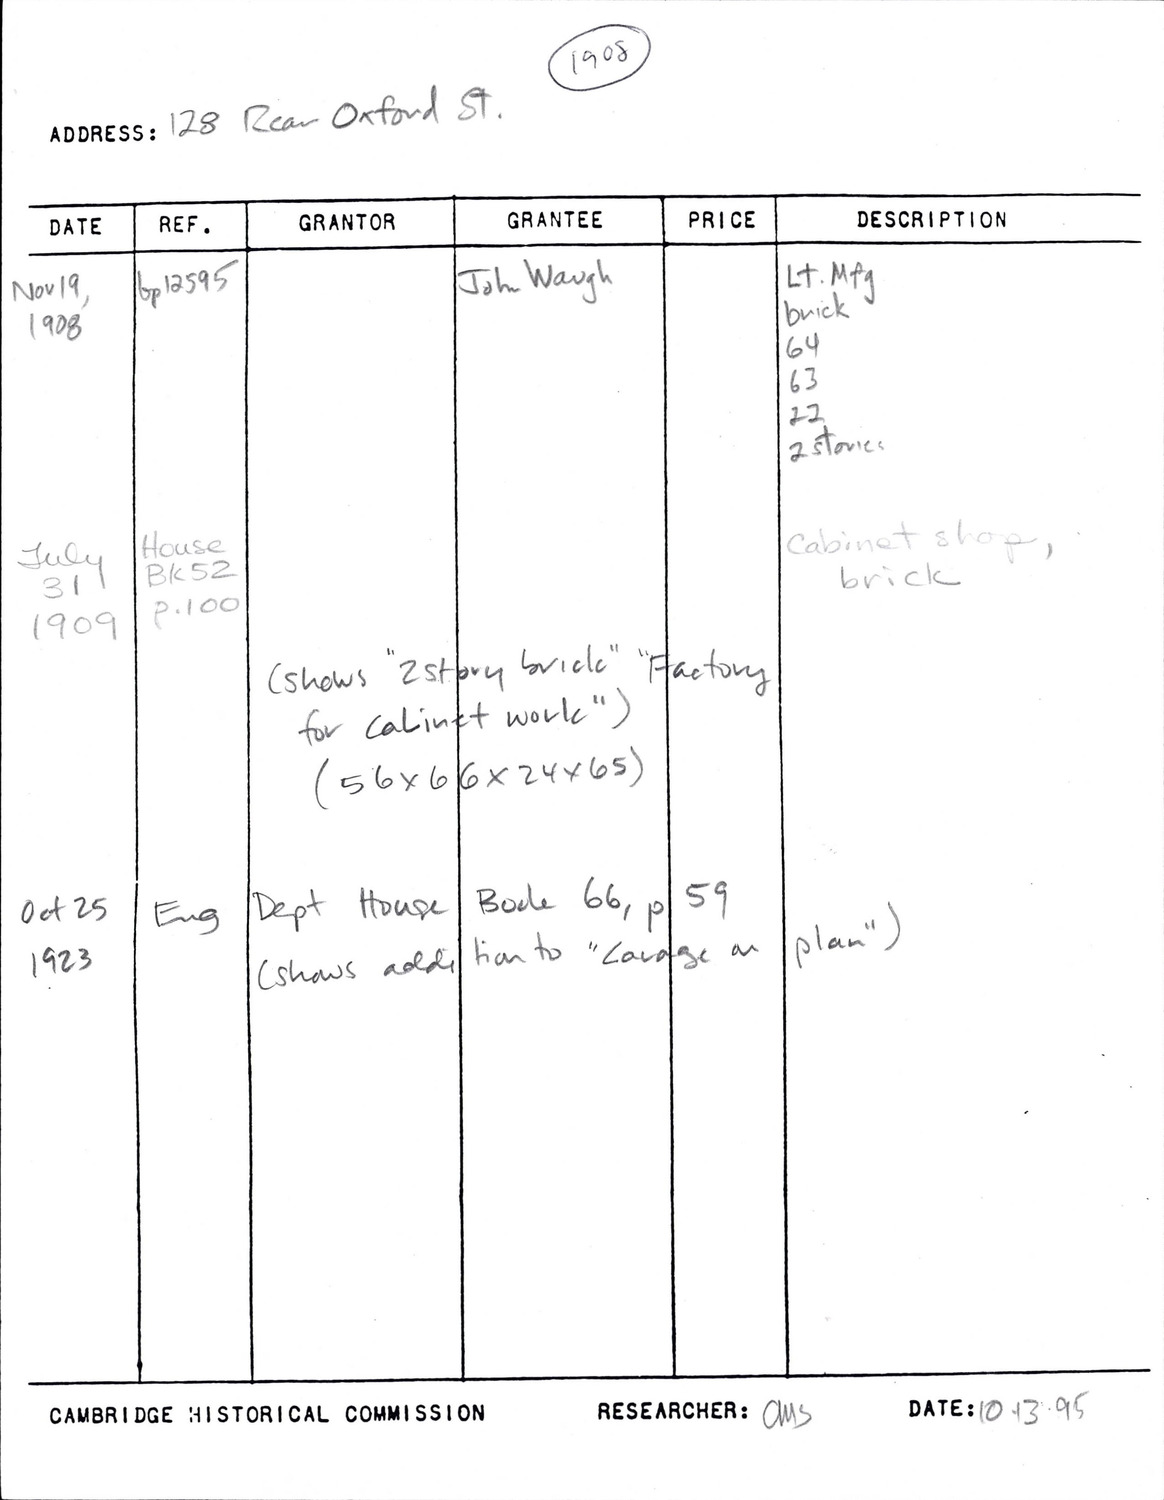 1908
ADDRESS: 128 Rear Oxford St.
DATE REF. GRANTOR GRANTEE PRICE DESCRIPTION
Nov 19, bp12595 John Waugh Lt. Mfg
1908 brick
64
63
22
2 stories
July House Cabinet shop,
31 Bk52 brick
1909 p.100
(shows "2 story brick" "Factory
for cabinet work")
(56x66x24x65)
Oct 25 Eng Dept House Book 66, p 59
1923 (shows addition to "Garage on plan")
CAMBRIDGE HISTORICAL COMMISSION RESEARCHER: DATE: 10-13-95